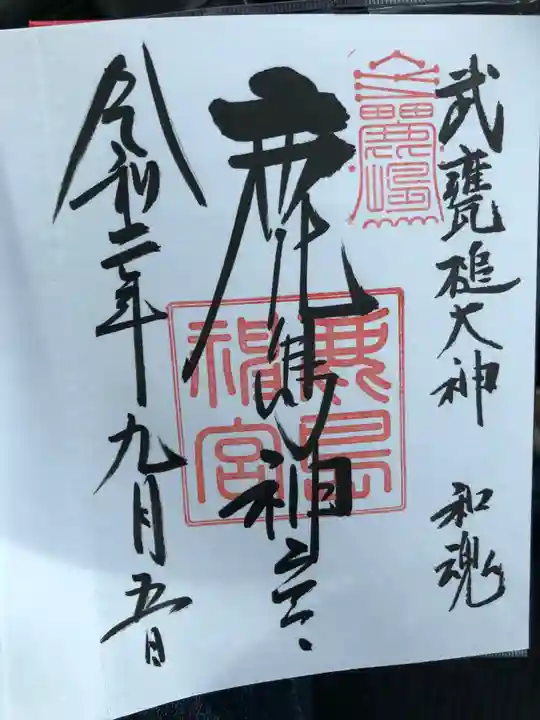 武甕槌大神 和魂
鹿嶋神宮
鹿島
神宮
令和二年九月五日